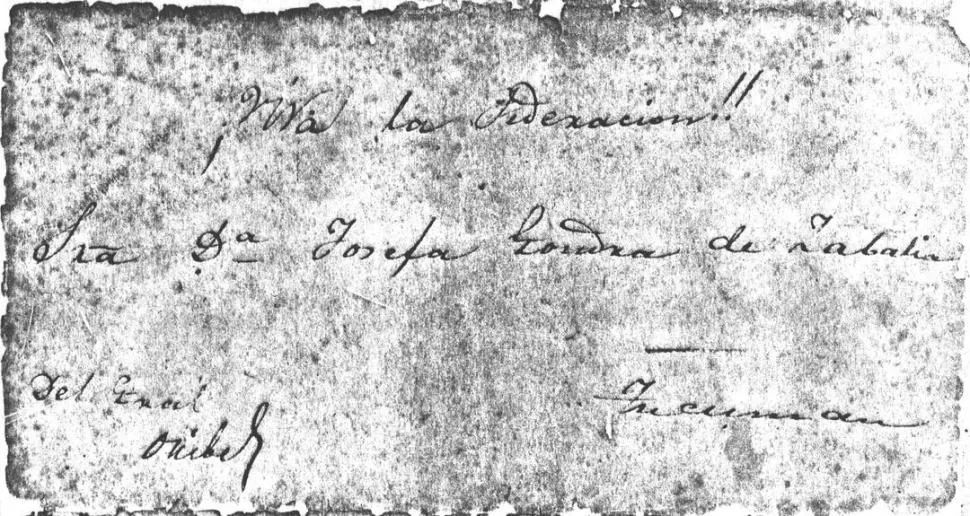 ¡Viva la Federacion!!
Sra Da. Josefa Gondra de Zabalia
Tucuman
Del Gral
Oribe